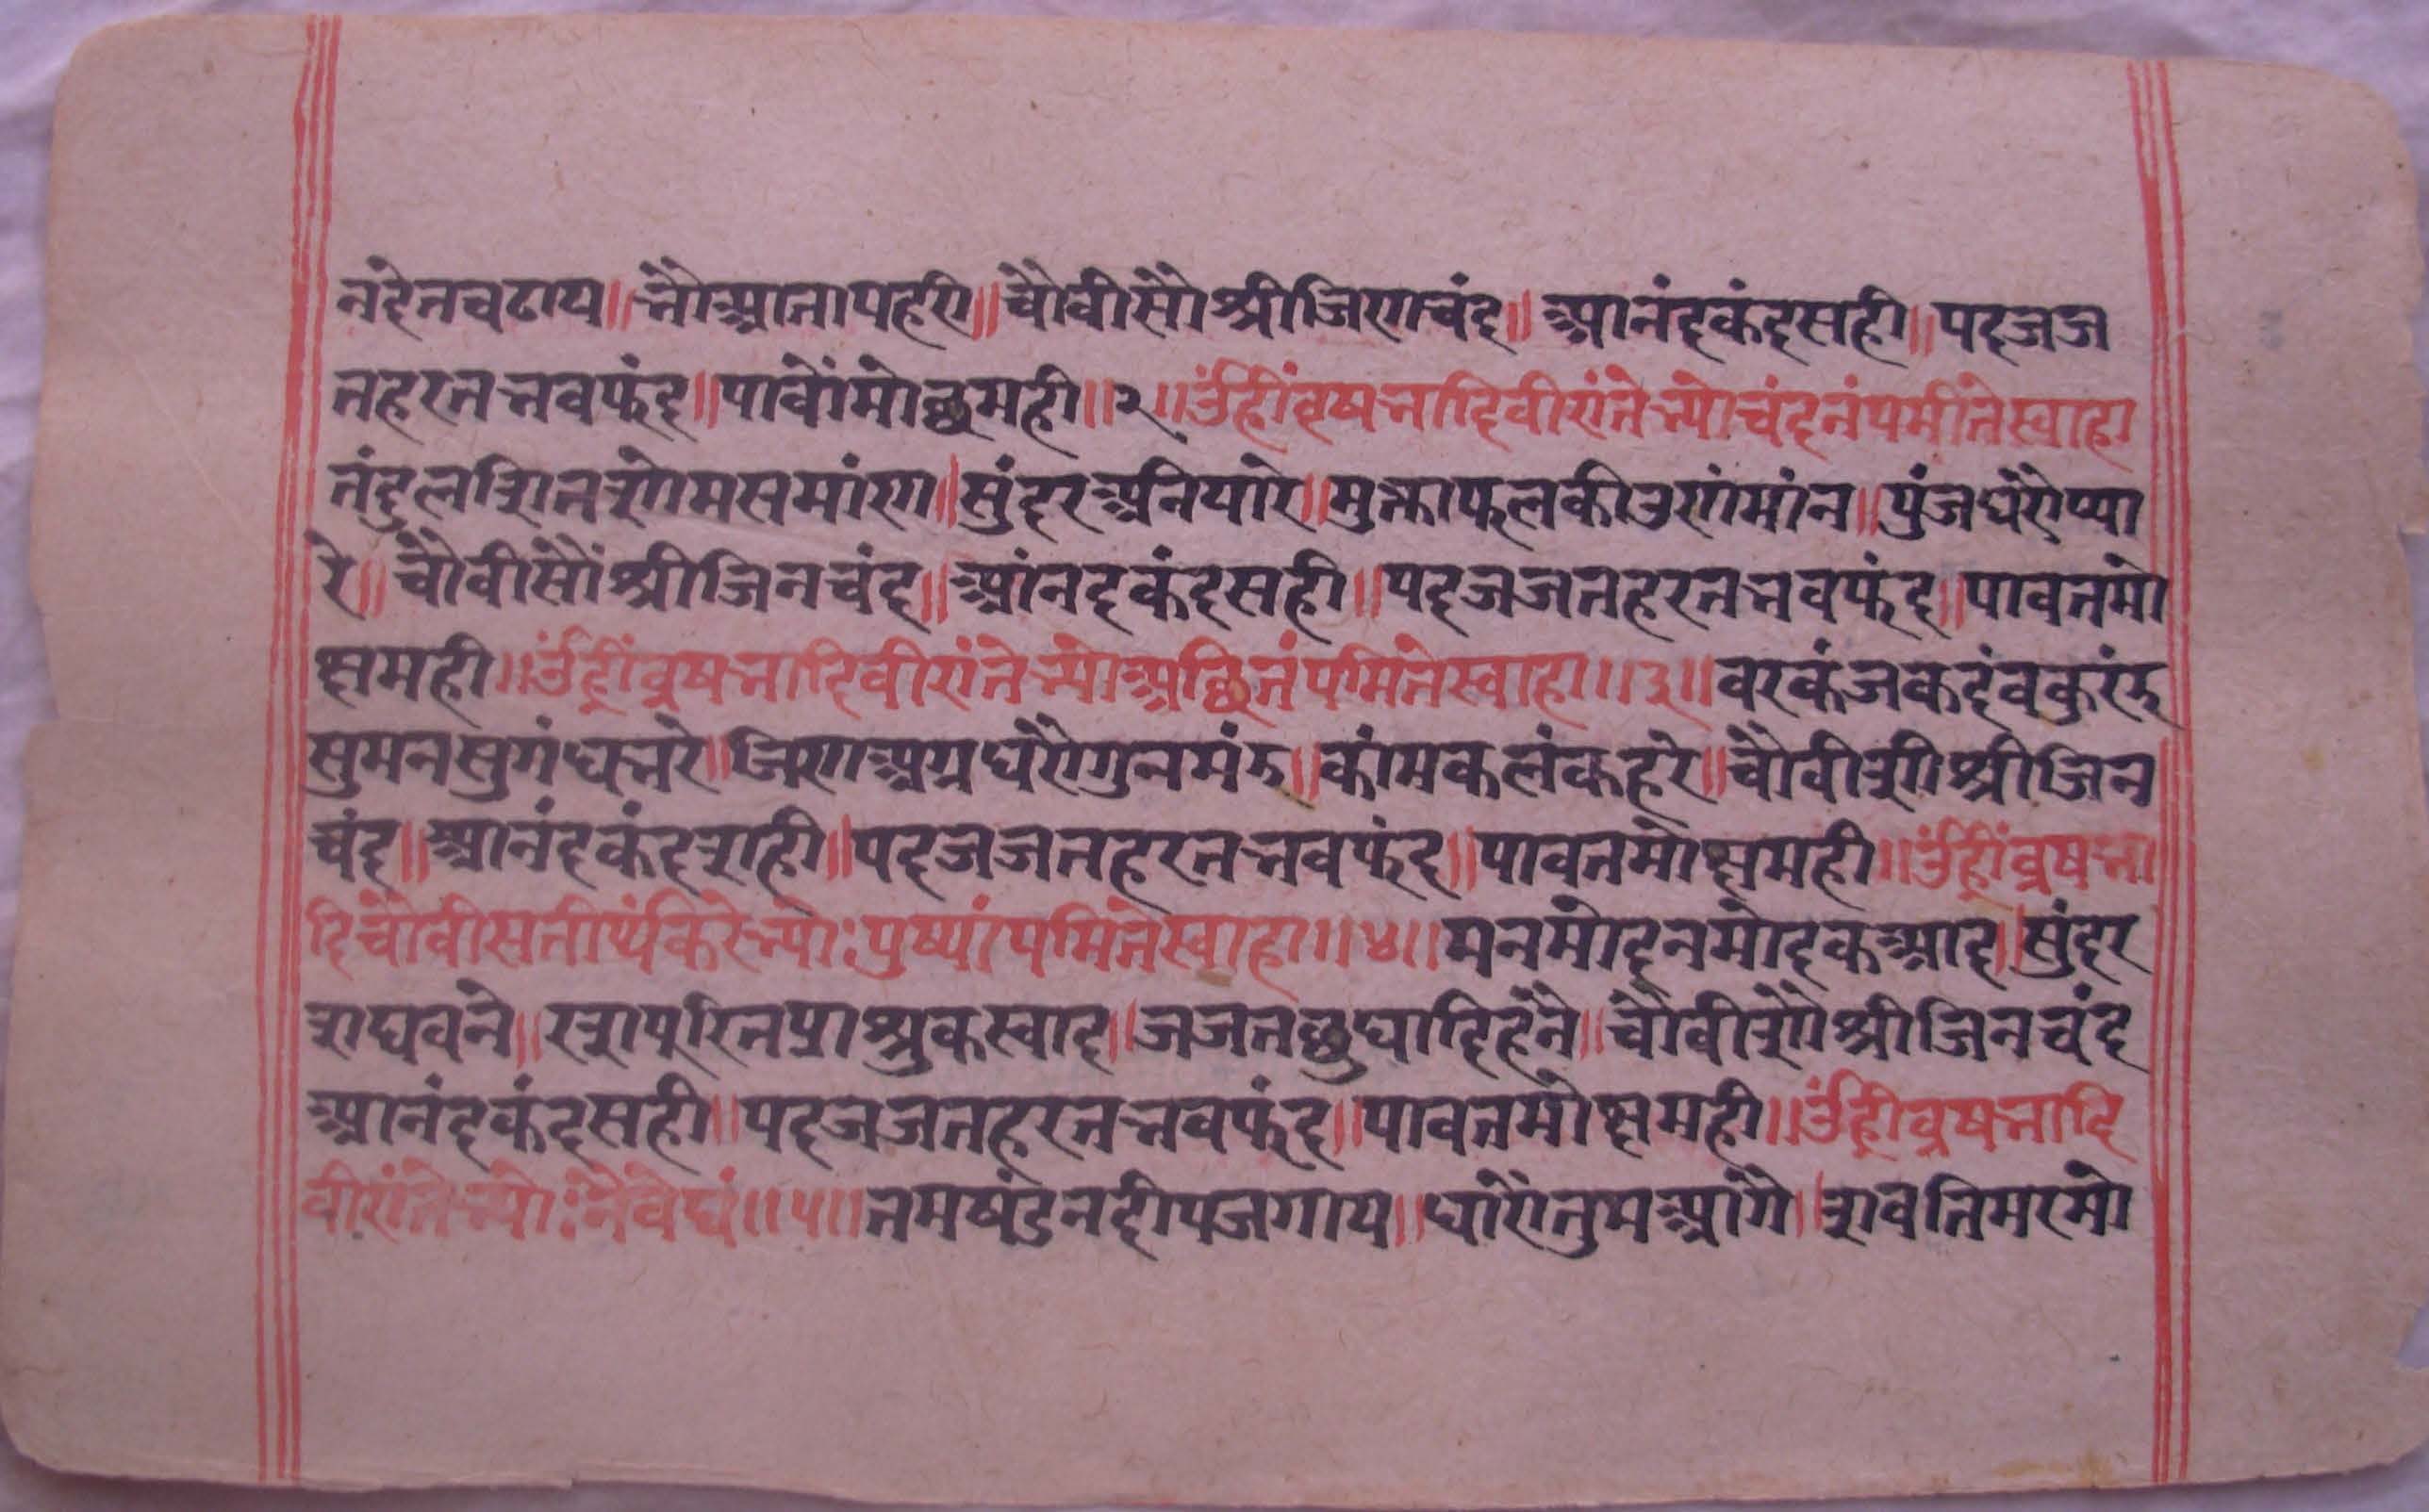 नंदेनचढाय॥भौआतापहरी॥चौवीसौश्रीजिणचंद॥आनंदकंदसही॥पदजज
तहरतभवफंद॥पावौंमोछमही॥२॥उंह्रींवृषभादिवीरांतेभ्योचंदनंपर्मीतेस्वाहा
तंदुलसितसोमसमांण॥सुंदरअनियारे॥मुक्ताफलकीउणंमांन॥पुंजधरौप्या
रे॥चौवीसौंश्रीजिनचंद॥आंनदकंदसही॥पदजजतहरतभवफंद॥पावतमो
क्षमही॥उंह्रींव्रषभादिवीरांतेभ्योअछितंपमितेस्वाहा॥३॥वरकंजकदंवकुरंड
सुमनसुगंधभरे॥जिणअग्रधरौगुनमंड॥कांमकलंकहरे॥चौवीसौश्रीजिन
चंद॥आनंदकंदसही॥पदजजतहरतभवफंद॥पावतमोक्षमही॥उंह्रींव्रषभा
दिचौवीसतीर्थंकरेभ्योःपुष्पांपमितेस्वाहा॥४॥मनमोदनमोदकआद॥सुंदर
सघवने॥रसपूरितप्राश्रुकस्वाद॥जजतछुधादिहंने॥चौवीसौश्रीजिनचंद
आनंदकंदसही॥पदजजतहरतभवफंद॥पावतमोक्षमही॥उंह्रीव्रषभादि
वीरांतेभ्योःनैवेघं॥५॥तमषंडनदीपजगाय॥धारौंतुमआगै॥सवतिमरमो